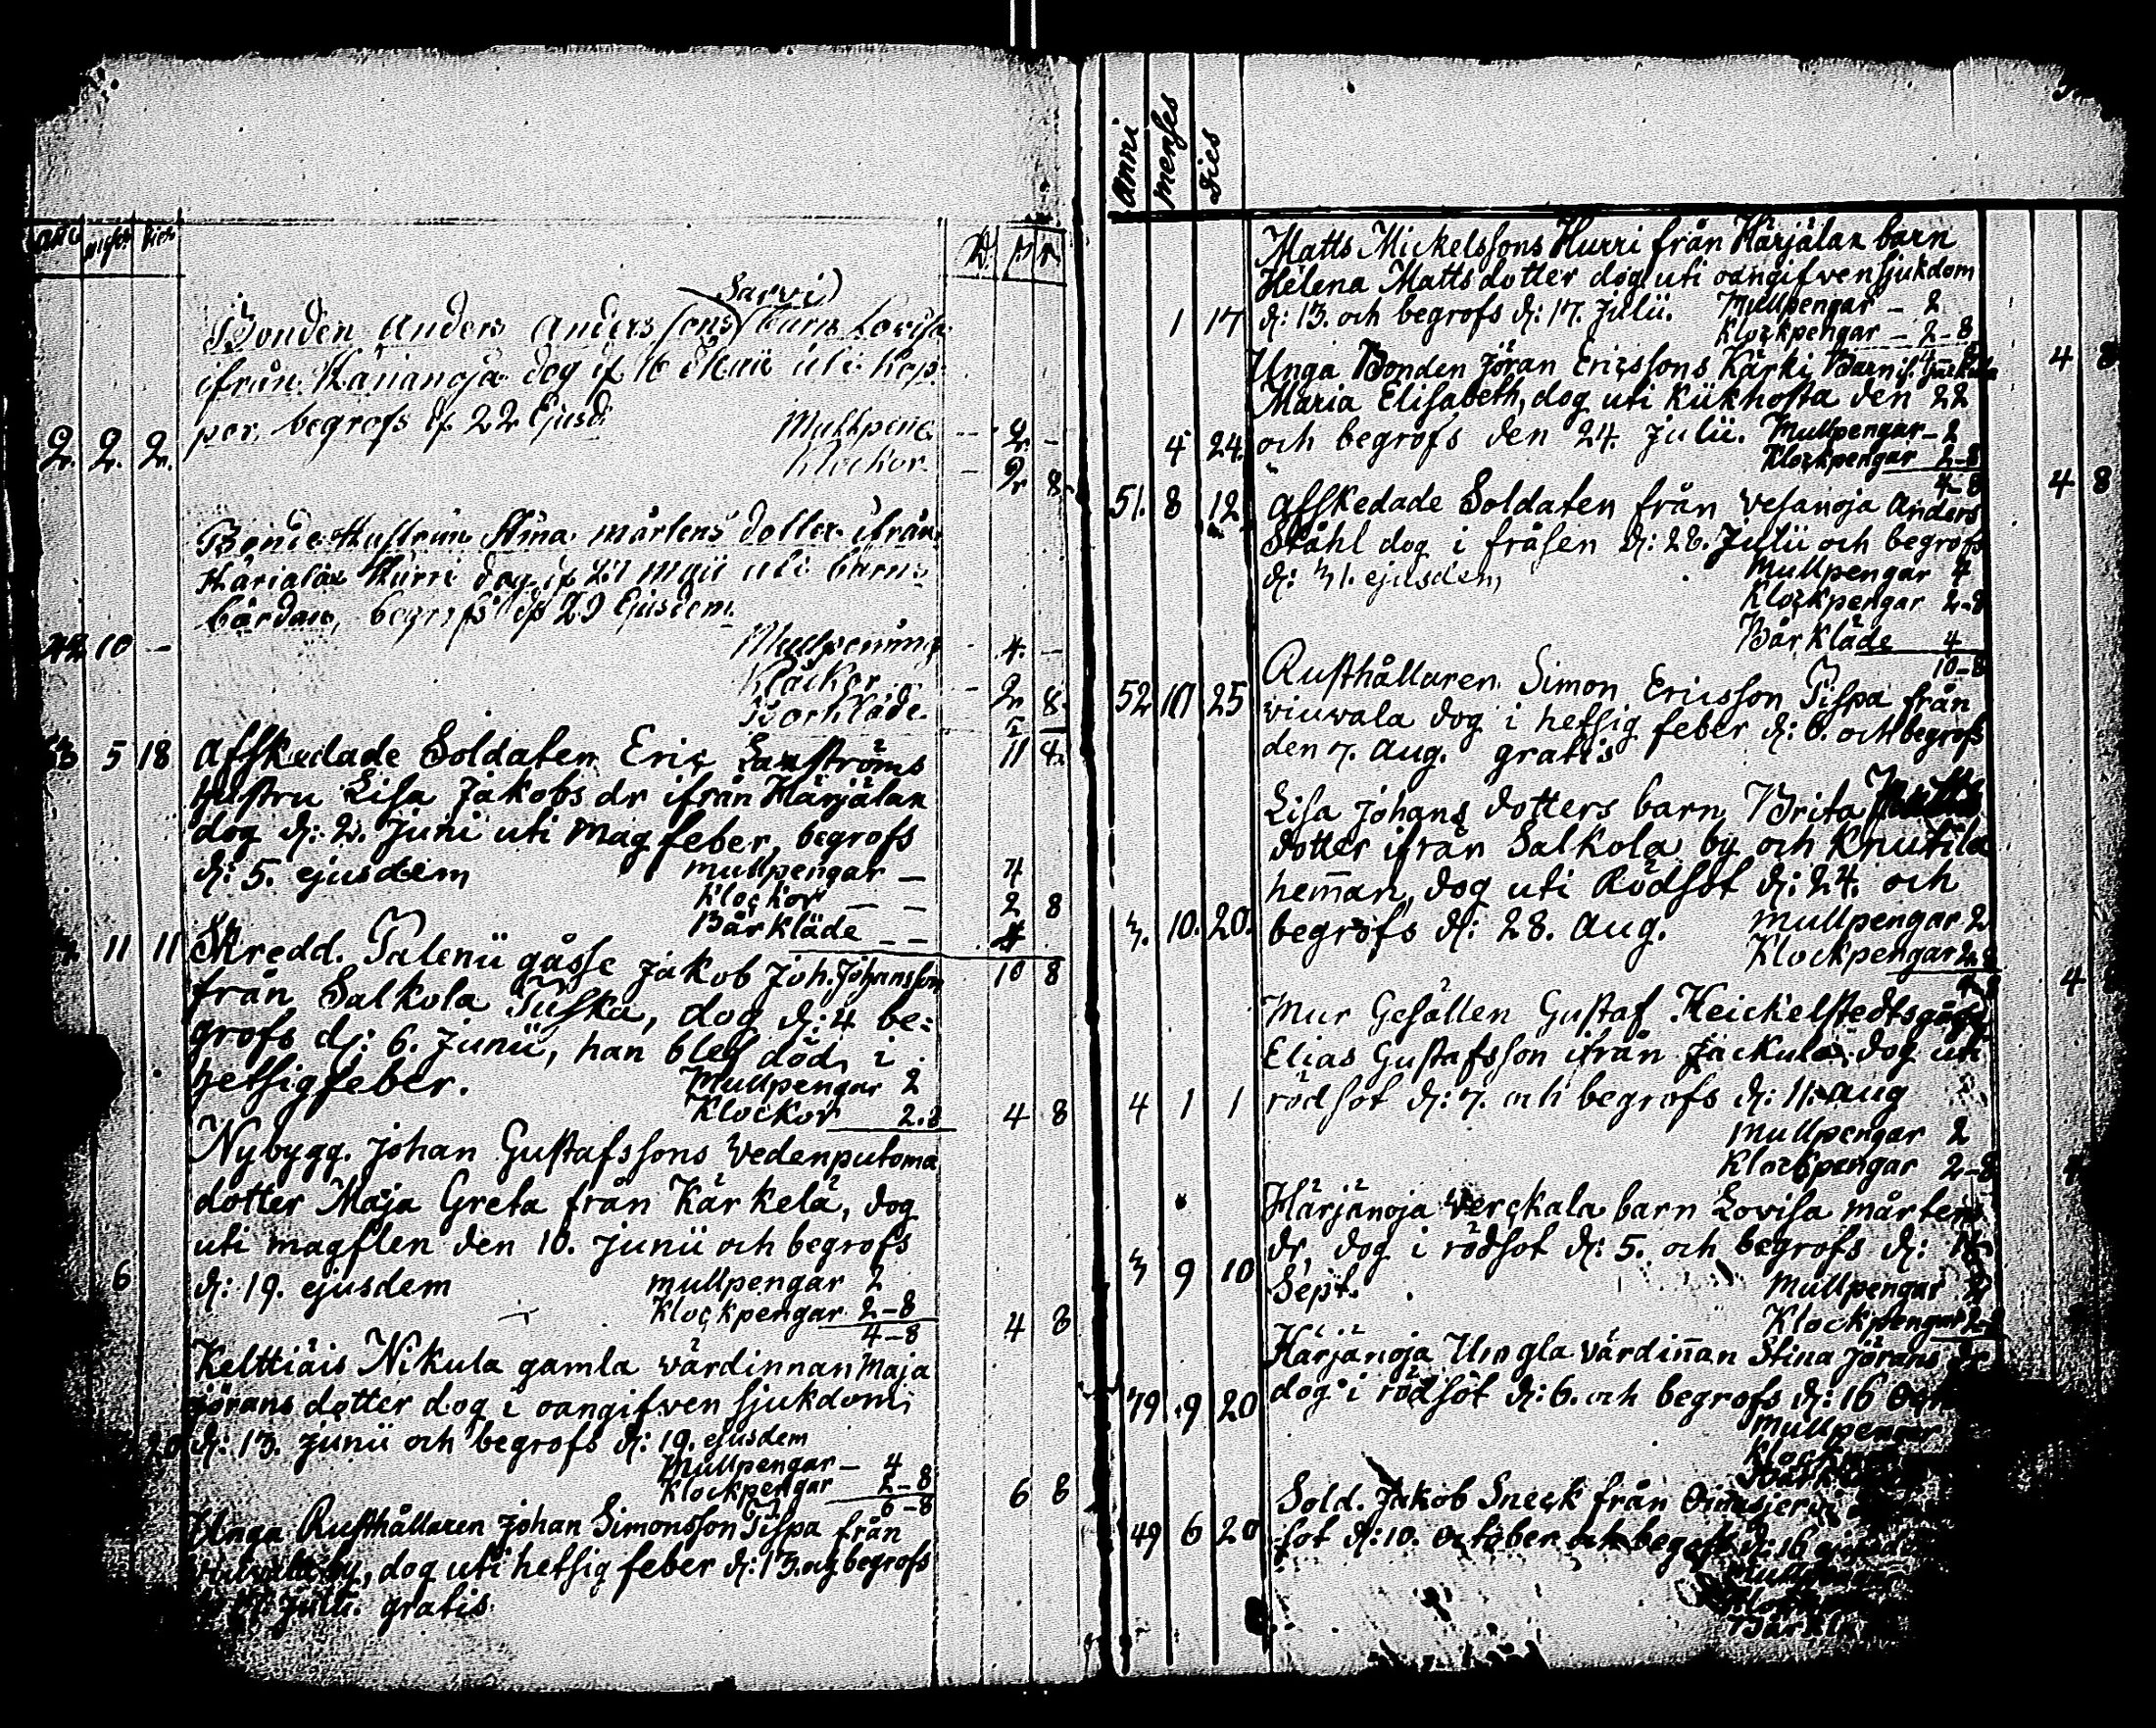 anni menses dies
Sarvi)
Bonden Anders Anders sons barn Lovisa
ifrån Karianoja dog d. 16 Maii uti Kop-
por, begrofs d. 22 Ejusd.
2. 2. 2.
Mullpene. -- 2 -
Klockor - 2 8
Bonde Hustrun Stina Mårtens dotter ifrån
Härjälax Hurri dog d. 27 Maii uti barns
bördan, begrofs d. 29 Ejusdem.
42 10 -
Mullpenning 4. -
Klåckor - 2 8.
Borkläde.
11 4
5 18 Afskedade Soldaten Eric
hustru Lisa Jakobs dr ifrån Härjälax
dog d: 2. Juni uti magfeber, begrofs
d: 5. ejusdem mullpengar — 4
Klockor — — 2 8
Bårkläde — — 4
10 8
11 11 Skredd. Talenii gåsse Jakob Joh. Johansson
från Salkola Tuska, dog d: 4 be-
grofs d: 6. Junii, han blef död i
hetsigfeber.
Mullpengar 2
Klockor 2.8 4 8
Nybygg. Johan Gustafssons Vedenputoma
dotter Maja Greta från Kärkelä, dog
uti magflen den 10. Junii och begrofs
6 d: 19. ejusdem mullpengar 2
Klockpengar 2-8
4-8 4 8
Kelttiäis Nikula gamla värdinnan Maja
jörans dotter dog i oangifven sjukdom
20 d: 13. Junii och begrofs d: 19. ejusdem
Mullpengar — 4
Klockpengar 2-8
6-8 6 8
Unga Rusthållaren Johan Simonsson Pispa från
by, dog uti hetsig feber d: 13. och begrofs
Julii. gratis
anni menses dies
Matts Mickelssons Hurri från Härjälax barn
Helena Mattsdotter dog uti oangifven sjukdom
1 17 d: 13. och begrofs d: 17. Julii. Mullpengar — 2
Klockpengar — 2-8
4 8
Unga Bonden Jöran Ericssons Kärki Barn
Maria Elisabeth, dog uti kükhosta den 22
4 24. och begrofs den 24. Julii. Mullpengar - 2
Klockpengar 2-8
4-8 4 8
51. 8 12 Afskedade Soldaten från Vesanoja Anders
Ståhl dog i fråsen d: 28. Julii och begrofs
d: 31. ejusdem,
Mullpengar 4
Klockpengar 2-8
Bårkläde 4
10-8
Rusthållaren Simon Ericsson Pispa från
52 10 25 Viuvala dog i hetsig feber d: 6. och begrofs
den 7. Aug. gratis
Lisa Johans dotters barn Brita Matts
dotter ifrån Salkola by och Knutila
heman, dog uti Rödsot d: 24. och
3. 10. 20. begrofs d: 28. Aug. Mullpengar 2
Klockpengar 2-8
4-8 4
Mur Gesällen Gustaf Heickelstedts gåsse
Elias Gustafsson ifrån Jackula. dog uti
4 1 1 rödsot d: 7. och begrofs d: 11. Aug
Mullpengar 2
Klockpengar 2-8
Härjänoja Verckala barn Lovisa mårtens
dr dog i rödsot d: 5. och begrofs d:
3 9 10 Sept.
Mullpengar 2
Klockpengar 2-8
Härjänoja Uigla värdinnan Stina Jörans dr
79 9 20 dog i rödsot d: 6. och begrofs d: 16
Mullpengar
Sold. Jakob Sneck från
49 6 20 sot d: 10. october och begrofs d: 16
Bårklä